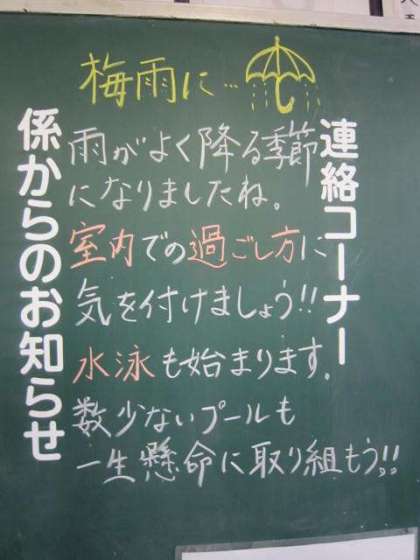 連絡コーナー
係からのお知らせ
梅雨に…
雨がよく降る季節
になりましたね。
室内での過ごし方に
気を付けましょう!!
水泳も始まります。
数少ないプールも
一生懸命に取り組もう!!